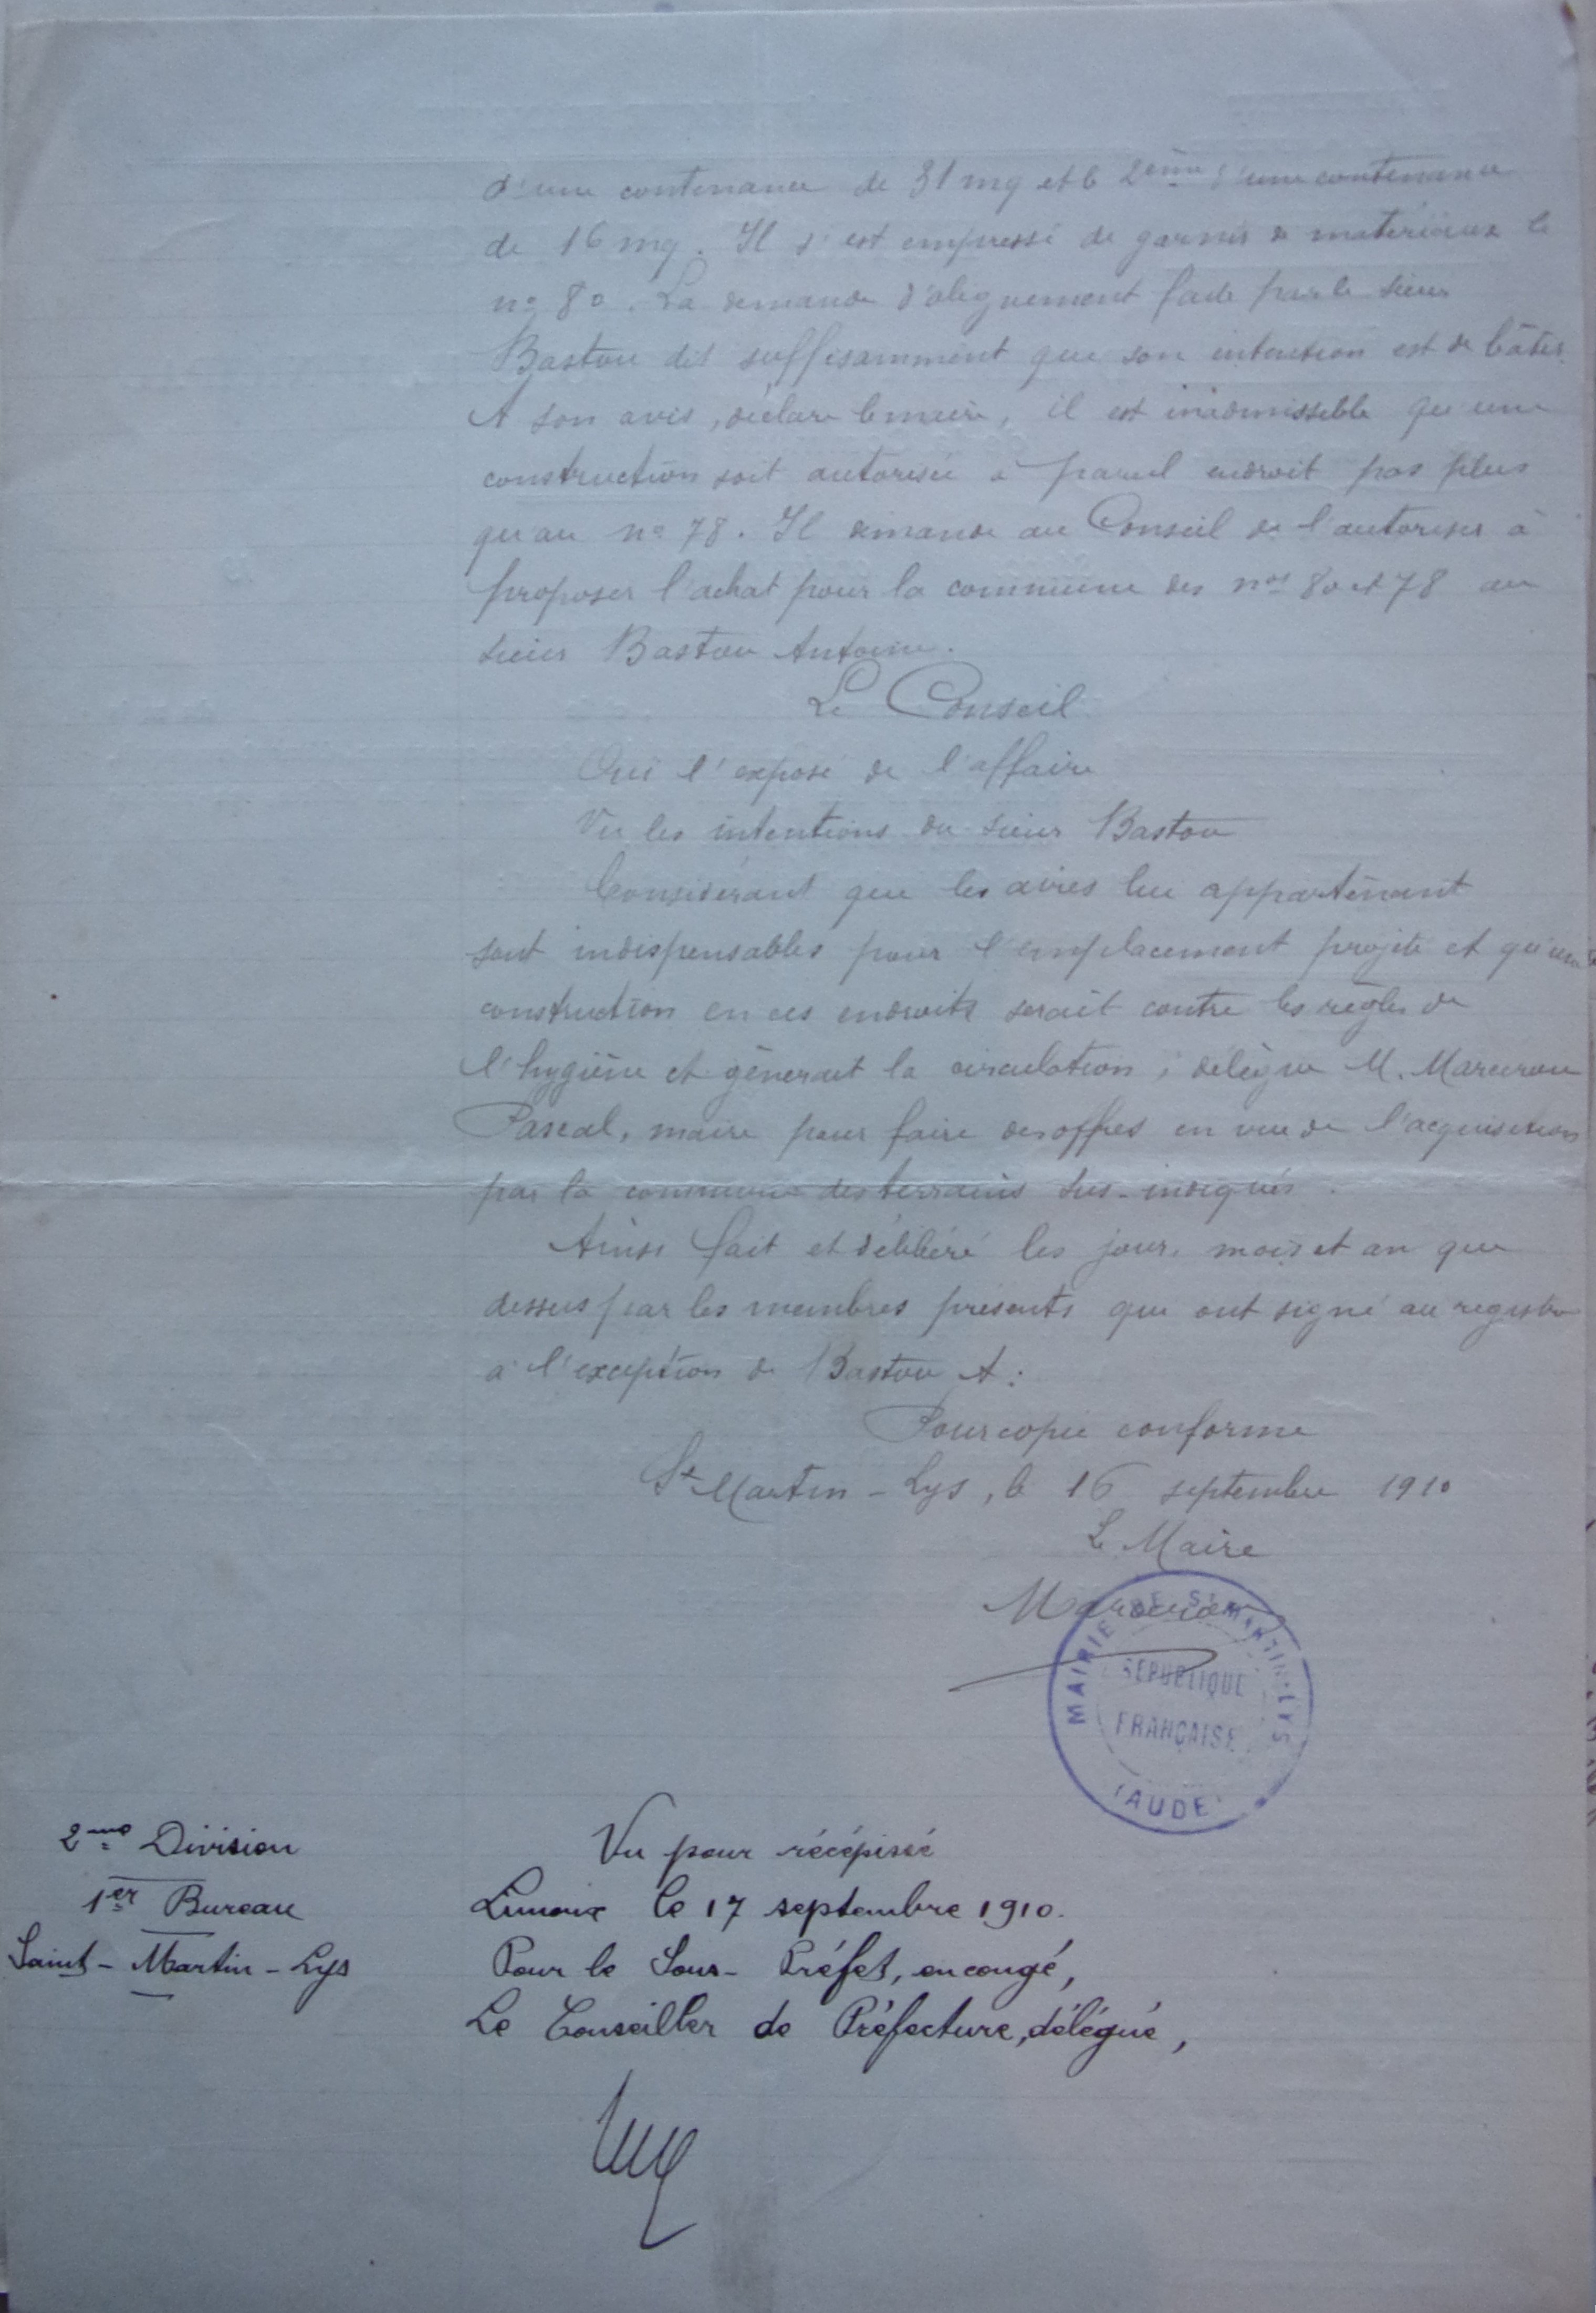 d'une contenance de 31 mq et le 2ème d'une contenance
de 16 mq. Il s'est empressé de garnir de matériaux le
no 80. La demande d'alignement faite par le sieur
Bastou dit suffisamment que son intention est de bâtir.
A son avis, déclare le maire, il est inadmissible qu'une
construction soit autorisée à pareil endroit pas plus
qu'au no 78. Il demande au Conseil de l'autoriser à
proposer l'achat pour la commune des nos 80 et 78 au
sieur Bastou Antoine.
Le Conseil
Ouï l'exposé de l'affaire
Vu les intentions du sieur Bastou
Considérant que les aires lui appartenant
sont indispensables pour l'emplacement projeté et qu'une
construction en ces endroits serait contre les règles de
l'hygiène et gênerait la circulation ; délègue M. Marcerou
Pascal, maire pour faire des offres en vue de l'acquisition
par la commune des terrains sus-indiqués.
Ainsi fait et délibéré les jour, mois et an que
dessus par les membres présents qui ont signé au registre
à l'exception de Bastou A :
Pour copie conforme
St Martin-Lys, le 16 septembre 1910
Le Maire
Marcerou
MAIRIE DE ST MARTIN-LYS
REPUBLIQUE
FRANÇAISE
(AUDE)
2me Division
1er Bureau
Saint-Martin-Lys
Vu pour récépissé
Limoux le 17 septembre 1910.
Pour le Sous-Préfet, en congé,
Le Conseiller de Préfecture, délégué,